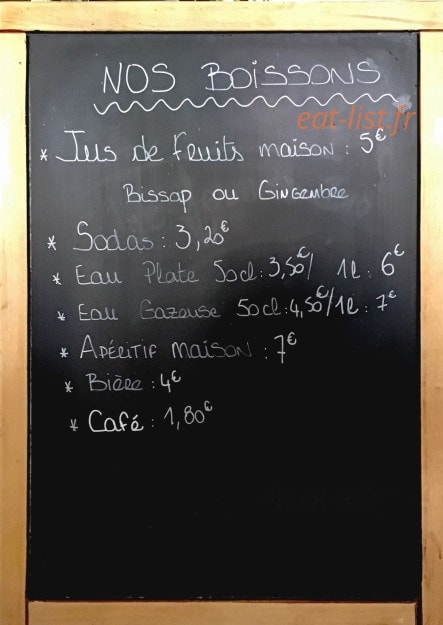 NOS BOISSONS
eat-list.fr
* Jus de fruits maison : 5€
Bissap ou Gingembre
* Sodas : 3,20€
* Eau Plate 50cl : 3,50€/ 1l : 6€
* Eau Gazeuse 50cl : 4,50€/1l : 7€
* APÉRITIF maison : 7€
* Bière : 4€
* Café : 1,80€